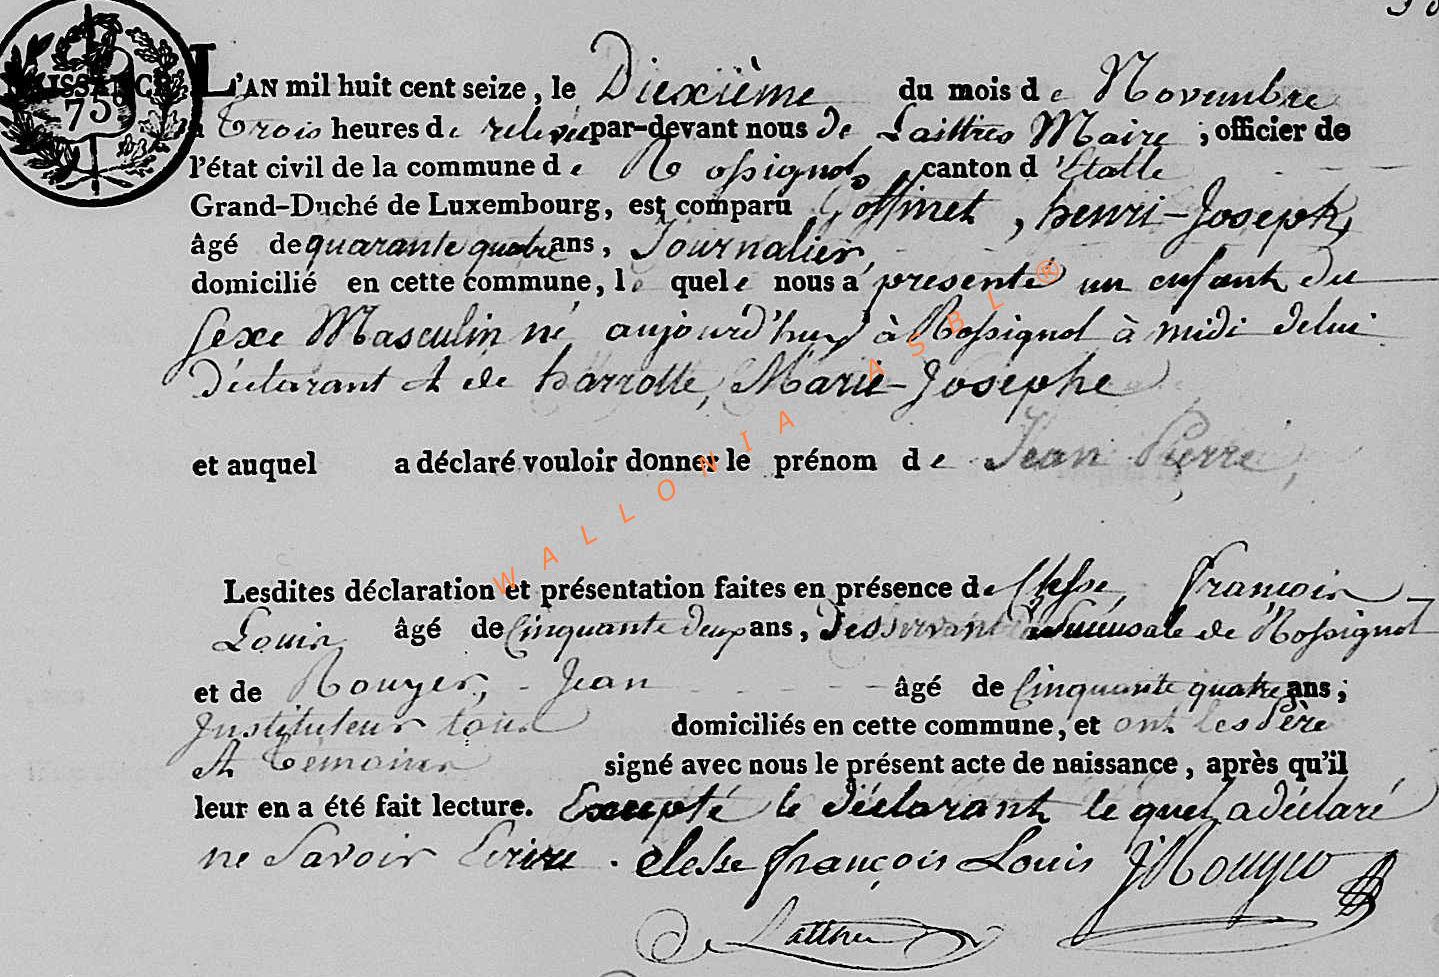 38
NAISSANCE
75
L'AN mil huit cent seize, le Diexième du mois de Novembre
à trois heures de relevée par-devant nous de Laittres Maire, officier de
l'état civil de la commune de Rossignol, canton d'Etalle
Grand-Duché de Luxembourg, est comparu Goffinet, henri-Joseph,
âgé de quarante quatre ans, Journalier,
domicilié en cette commune, le quel nous a présenté un enfant du
Sexe Masculin né aujourd'huy à Rossignol à midi de lui
Déclarant et de harrotte, Marie-Josephe
et auquel a déclaré vouloir donner le prénom de Jean Pierre,
Lesdites déclaration et présentation faites en présence de Clesse, François
Louis, âgé de Cinquante deux ans, Desservant la Succusale de Rossignol
et de Rouyer, Jean âgé de Cinquante quatre ans;
Instituteur tous domiciliés en cette commune, et ont les Père
et témoins signé avec nous le présent acte de naissance, après qu'il
leur en a été fait lecture. Excepté le déclarant le quel a déclaré
ne Savoir Ecrire. Clesse françois Louis JRouyer
De Lattre
WALLONIA ASBL®